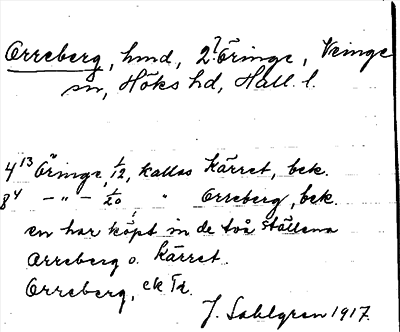 Orreberg, hmd, 2? Öringe, Veinge
sn, Höks hd, Hall. l.
4¹³ Öringe, 1/12, kallas Kärret, bek.
8⁴ – " – 1/20 " Orreberg, bek.
en har köpt in de två ställena
Orreberg o. Kärret.
Orreberg, ek
J. Sahlgren 1917.